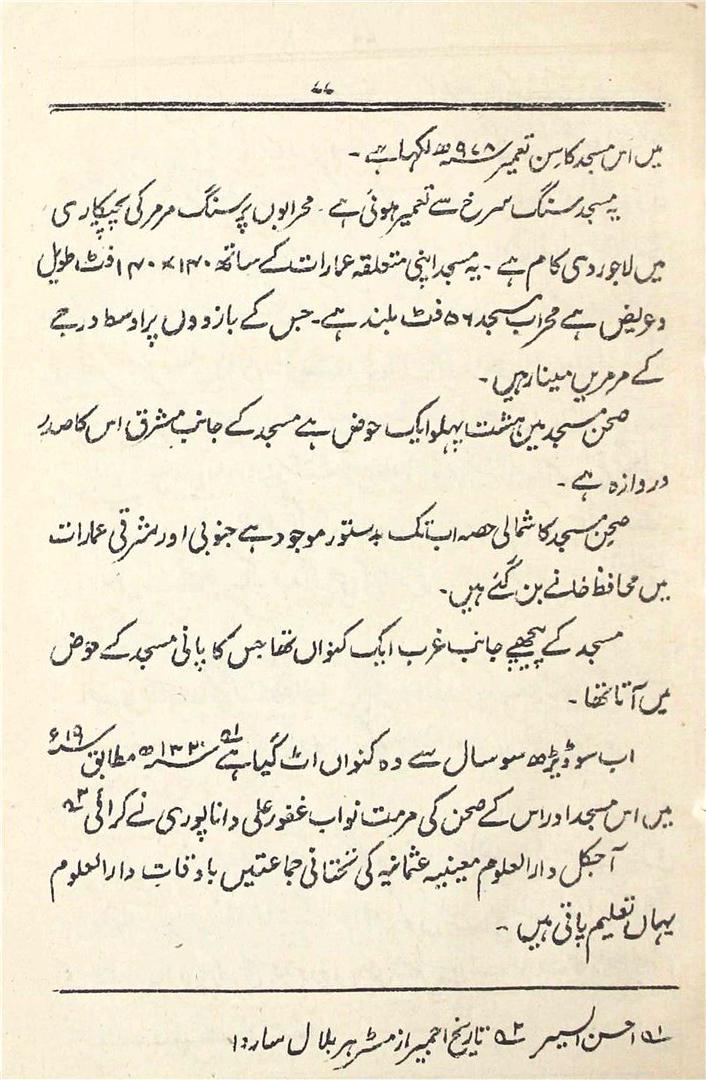 ۷۷
میں اس مسجد کا سن تعمیر ۹۷۸ھ لکہا ہے۔
یہ مسجد سنگ سرخ سے تعمیر ہوئی ہے۔ محرابوں پر سنگ مرمر کی پچیکاری
میں لاجوردی کام ہے۔ یہ مسجد اپنی متعلقہ عمارات کے ساتھ ۱۴۰×۱۴۰ فٹ طویل
و عریض ہے محراب مسجد ۵۶ فٹ بلند ہے۔ جس کے بازوں پر اوسط درجے
کے مرمریں مینار ہیں۔
صحن مسجد میں ہشت پہلو ایک حوض ہے مسجد کے جانب مشرق اس کا صدر
دروازہ ہے۔
صحن مسجد کا شمالی حصہ اب تک بدستور موجود ہے جنوبی اور مشرقی عمارات
میں محافظ خانے بن گئے ہیں۔
مسجد کے پیچھے جانب غرب ایک کنواں تھا جس کا پانی مسجد کے حوض
میں آتا تھا۔
اب سو ڈیڑھ سو سال سے وہ کنواں اٹ گیا ہے ۱؎ ۱۳۲۰ھ مطابق ۱۹ء
میں اس مسجد اور اس کے صحن کی مرمت نواب غفور علی داناپوری نے کرائی ۲؎
آجکل دارالعلوم معینیہ عثمانیہ کی تحتانی جماعتیں باوقات دارالعلوم
یہاں تعلیم پاتی ہیں۔
۱؎ احسن السیر ۲؎ تاریخ اجمیر از مسٹر ہر بلال ساردا